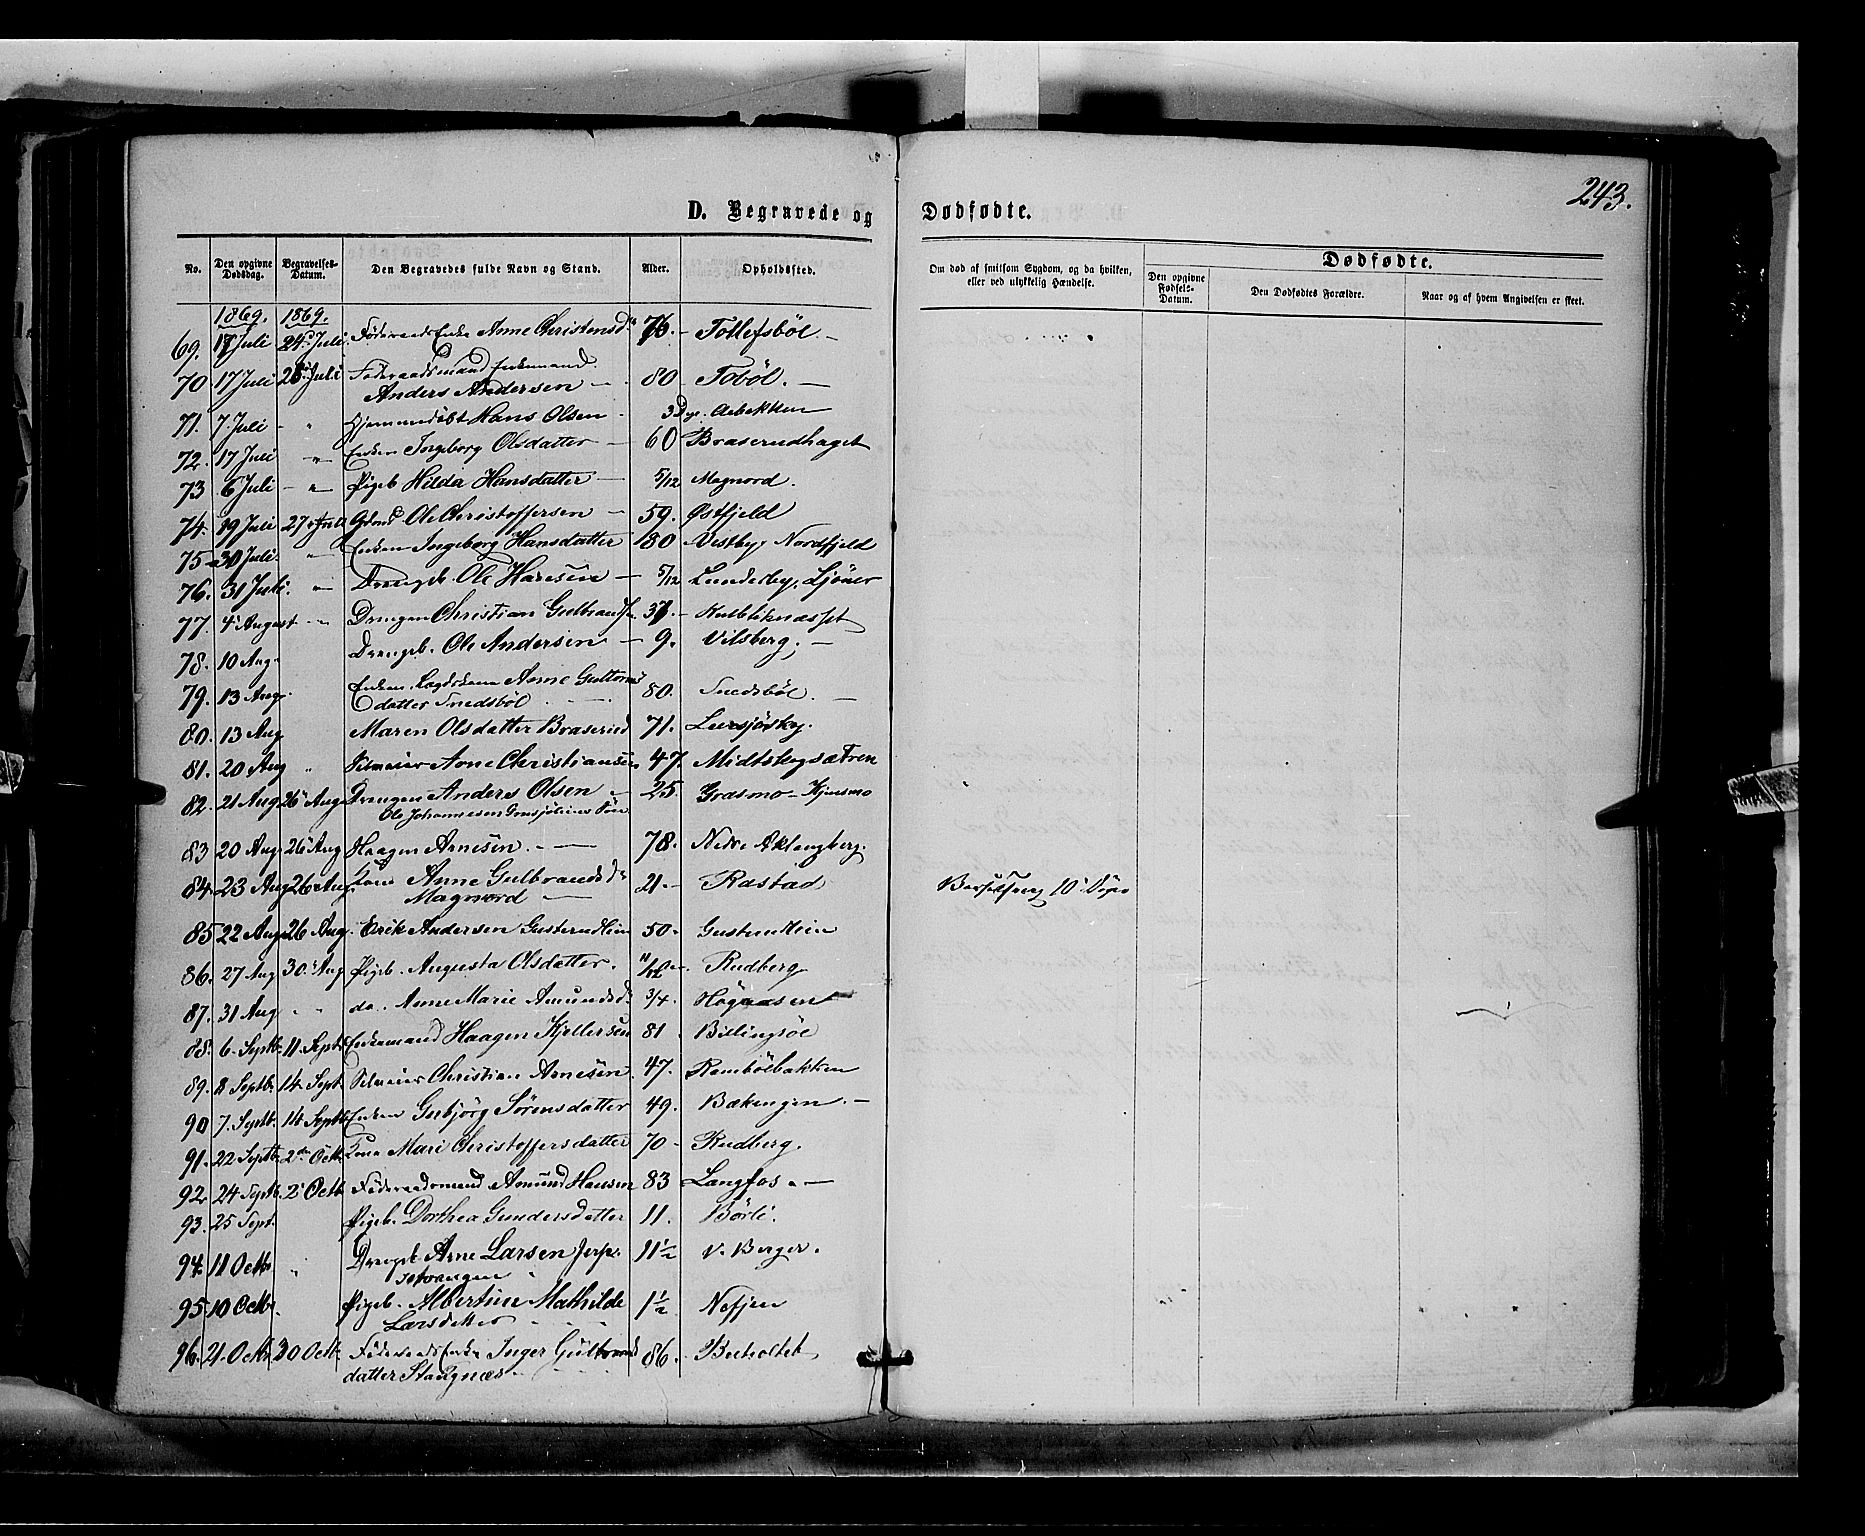 243.
D. Begravede og Dødfødte.
No. Den opgivne Dødsdag. Begravelses-Datum. Den Begravedes fulde Navn og Stand. Alder. Opholdssted. Om død af smitsom Sygdom, og da hvilken, eller ved ulykkelig Hændelse. Dødfødte.
Den opgivne Fødsels-Datum. Den Dødfødtes Forældre. Naar og af hvem Angivelsen er skeet.
1869. 1869.
69. 17 Juli 24 Juli Enke Anne Christensd. 76. Tollefsböl.
70 17 Juli Juli Föderaadsmand Enkemand
Anders Andersen 80 Toböl.
71. 7 Juli " Hjemmedöbt Hans Olsen 3 Dge.
72. 17 Juli " Enken Ingeborg Olsdatter 60 Braserudhaget
73 6 Juli " Pigeb Hilda Hansdatter 5/12 Magnord.
74. 19 Juli 27 Juli Ole Christoffersen 59. Östfjeld
75 30 Juli " Enken Ingeborg Hansdatter 80 Vestby, Nordfjeld
76. 31 Juli. " Drengeb. Ole Hansen 5/12 Lunderby,
77. 4 August " Drengen Christian Gulbrands.
78. 10 Aug. Drengeb. Ole Andersen 9. Vilsberg,
79. 13 Aug. Enken Lægdskone Anne Guttorms
datter Snedsböl 80. Snedsböl.
80. 13 Aug Maren Olsdatter Braserud 71.
81. 20 Aug " Selveier Arne Christiansen 47. Midtskogsætren
82. 21 Aug 26 Aug Drengen Anders Olsen 25. Grasmo
Ole Johannesen
83 20 Aug 26 Aug Haagen Arnesen. 78. Nedre
84. 23 Aug 26 Aug Kone Anne Gulbrandsd. 21. Rastad
Magnord
85 22 Aug 26 Aug. Erik Andersen Gusterudlien 50. Gusterudlien
86. 27 Aug 30 Aug Pigeb. Augusta Olsdatter. 11/12 Rudberg
87. 31 Aug " do. Anne Marie Amundsd. 3/4. Högaasen
88. 6 Septb. 11 Septb Enkemand Haagen Kjellersen 81. Billingsöe
89. 8 Septb. 14 Sept. Selveier Christian Arnesen. 47. Rambölbakken
90 7. Septb. 14 Septb Enken Gubjörg Sörensdatter 49. Bækengen.
91. 22 Septb 2den Octb. Kone Mari Christoffersdatter 70 Rudberg.
92. 24 Septb 2 Octb Föderaadsmand Amund Hansen 83 Langfos.
93. 25 Sept. Pigeb. Dorthea Gundersdatter 11. Börli.
94. 11 Octb " Drengeb Arne Larsen
11 1/2 V. Berger.
95 10 Octb. Pigeb. Albertine Mathilde 1 1/2 Nefjen
Larsdatter
96. 21. Octb 30 Octb. Föderaads Enke Inger Guttorms
datter Stangnæs 86.